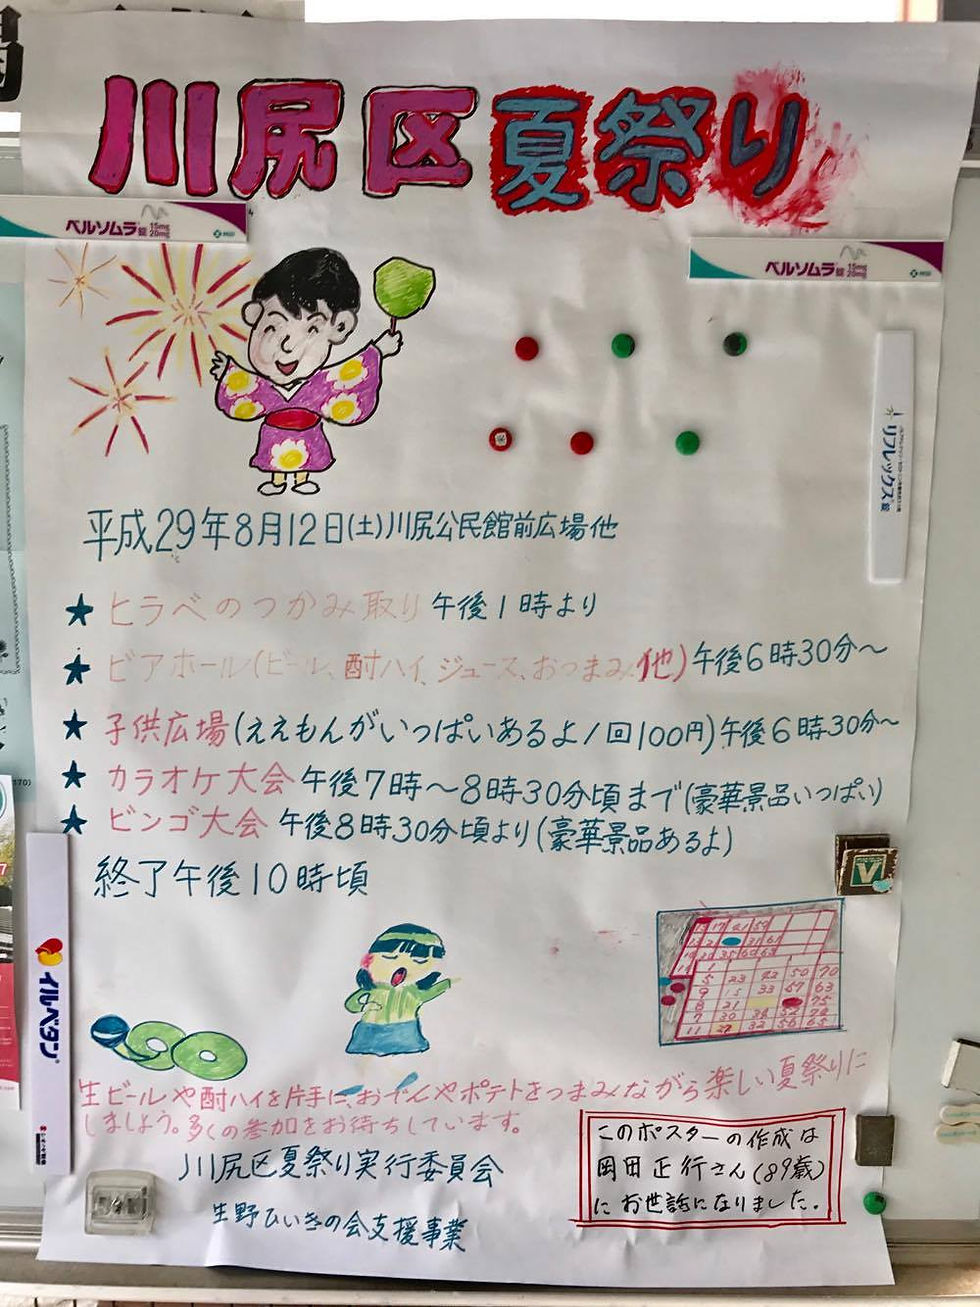 川尻区夏祭り
ベルソムラ錠 15mg 20mg
ベルソムラ錠 15mg 20mg
リフレックス錠
平成29年8月12日(土)川尻公民館前広場他
★ ヒラベのつかみ取り 午後1時より
★ ビアホール(ビール、酎ハイ、ジュース、おつまみ他)午後6時30分〜
★ 子供広場(ええもんがいっぱいあるよ1回100円)午後6時30分〜
★ カラオケ大会 午後7時〜8時30分頃まで(豪華景品いっぱい)
★ ビンゴ大会 午後8時30分頃より(豪華景品あるよ)
終了午後10時頃
V
イルベタン
生ビールや酎ハイを片手に、おでんやポテトをつまみながら楽しい夏祭りに
しましょう。多くの参加をお待ちしています。
川尻区夏祭り実行委員会
生野ひいきの会支援事業
このポスターの作成は
岡田正行さん(89歳)
にお世話になりました。